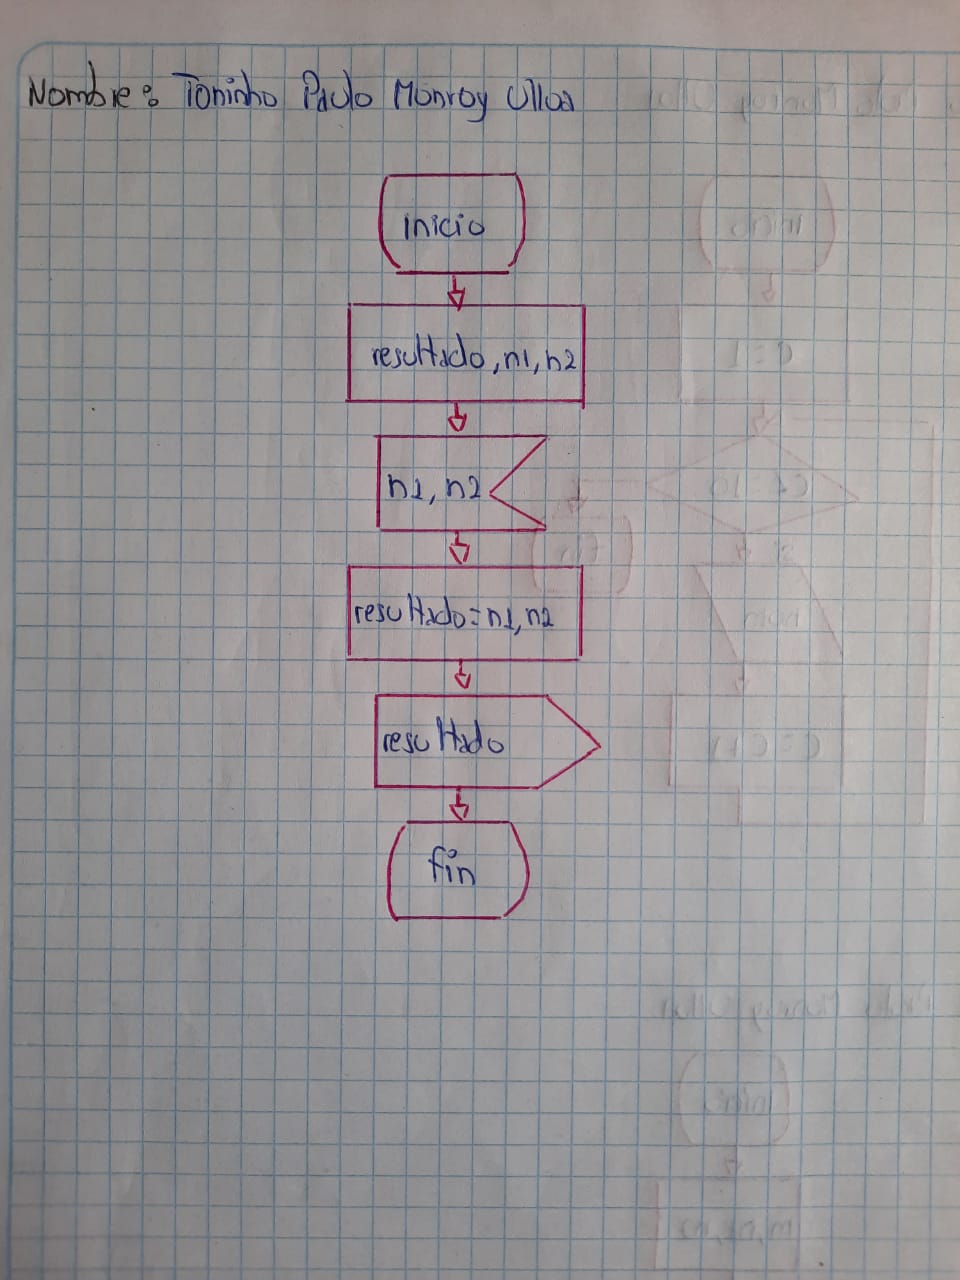 Nombre: Toninho Paulo Monroy Ulloa
inicio
resultado, n1, n2
n1, n2
resultado=n1, n2
resultado
fin